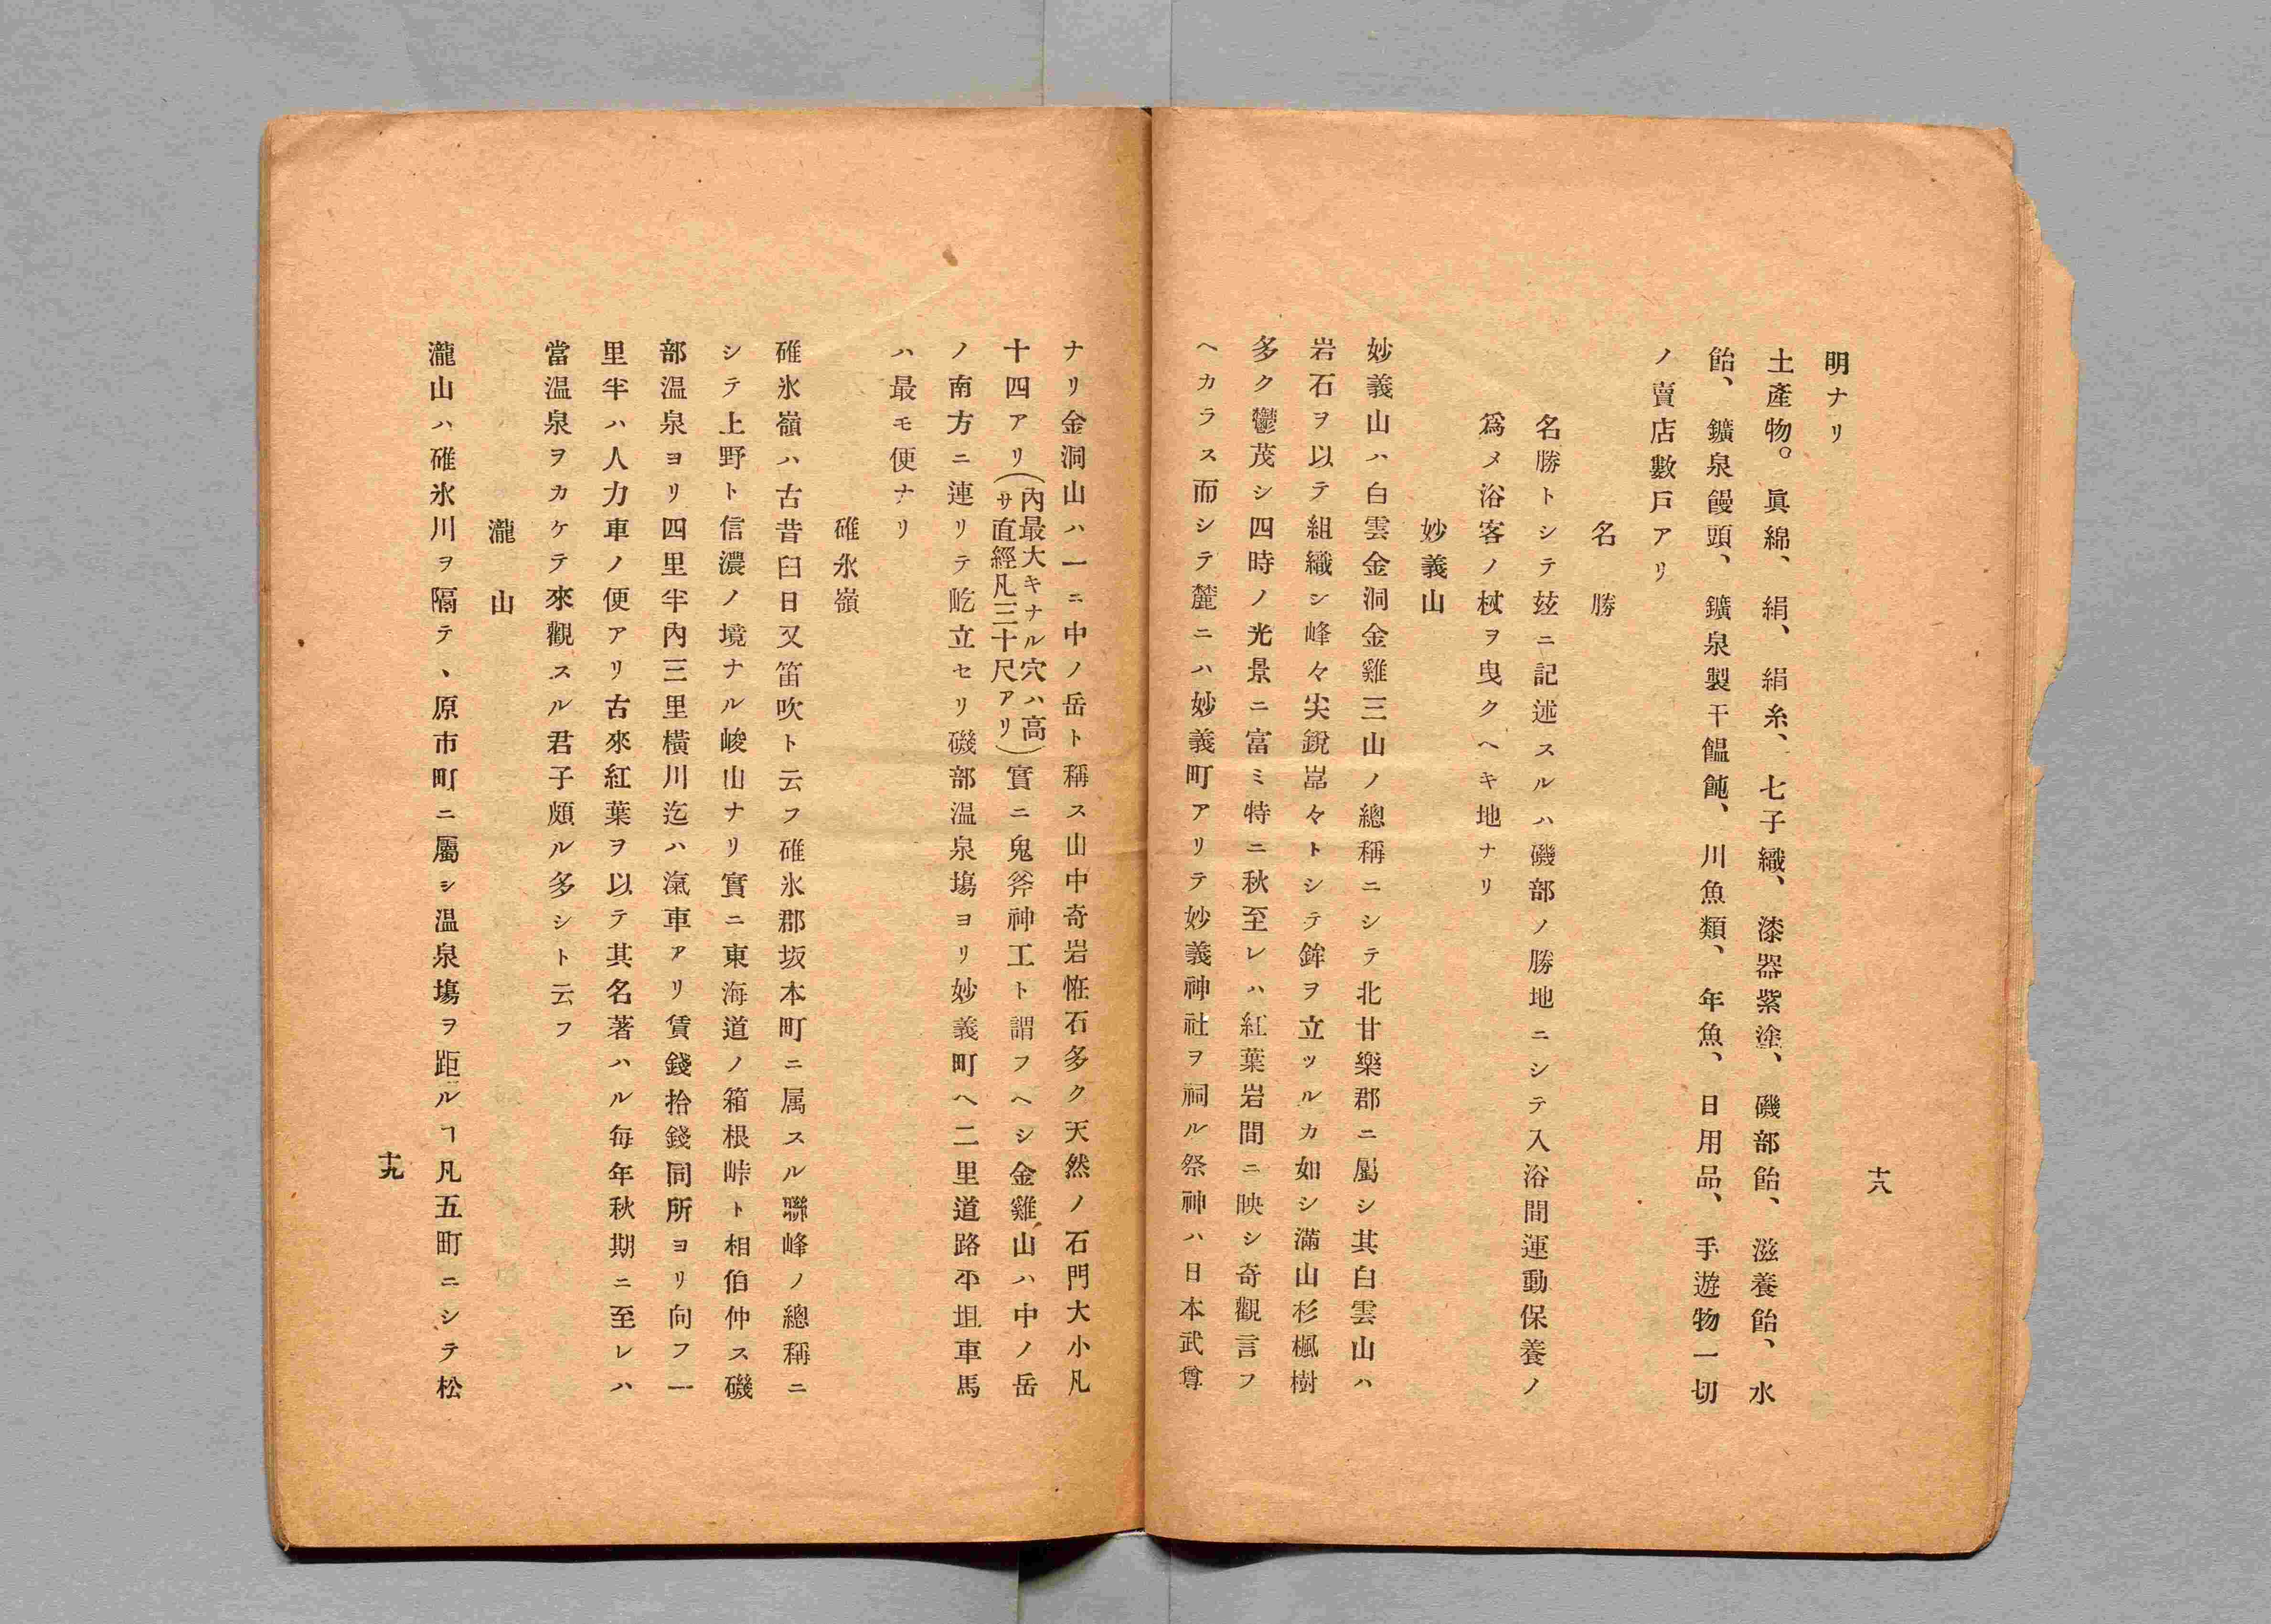 十八
明ナリ
土產物。眞綿、絹、絹糸、七子織、漆器紫塗、磯部飴、滋養飴、水
飴、鑛泉饅頭、鑛泉製干饂飩、川魚類、年魚、日用品、手遊物一切
ノ賣店數戸アリ
名勝
名勝トシテ玆ニ記述スルハ磯部ノ勝地ニシテ入浴間運動保養ノ
爲メ浴客ノ杖ヲ曳クヘキ地ナリ
妙義山
妙義山ハ白雲金洞金雞三山ノ總稱ニシテ北甘樂郡ニ屬シ其白雲山ハ
岩石ヲ以テ組織シ峰々尖銳嵓々トシテ鉾ヲ立ツルカ如シ滿山杉楓樹
多ク鬱茂シ四時ノ光景ニ富ミ特ニ秋至レハ紅葉岩間ニ映シ奇觀言フ
ヘカラス而シテ麓ニハ妙義町アリテ妙義神社ヲ祠ル祭神ハ日本武尊
ナリ金洞山ハ一ニ中ノ岳ト稱ス山中奇岩恠石多ク天然ノ石門大小凡
十四アリ(內最大キナル穴ハ高サ直經凡三十尺アリ)實ニ鬼斧神工ト謂フヘシ金雞山ハ中ノ岳
ノ南方ニ連リテ屹立セリ磯部温泉塲ヨリ妙義町ヘ二里道路平坦車馬
ハ最モ便ナリ
碓氷嶺
碓氷嶺ハ古昔臼日又笛吹ト云フ碓氷郡坂本町ニ属スル聯峰ノ總稱ニ
シテ上野ト信濃ノ境ナル峻山ナリ實ニ東海道ノ箱根峠ト相伯仲ス磯
部温泉ヨリ四里半內三里橫川迄ハ滊車アリ賃錢拾錢同所ヨリ向フ一
里半ハ人力車ノ便アリ古來紅葉ヲ以テ其名著ハル每年秋期ニ至レハ
當温泉ヲカケテ來觀スル君子頗ル多シト云フ
瀧山
瀧山ハ碓氷川ヲ隔テヽ原市町ニ屬シ温泉塲ヲ距ルヿ凡五町ニシテ松
十九